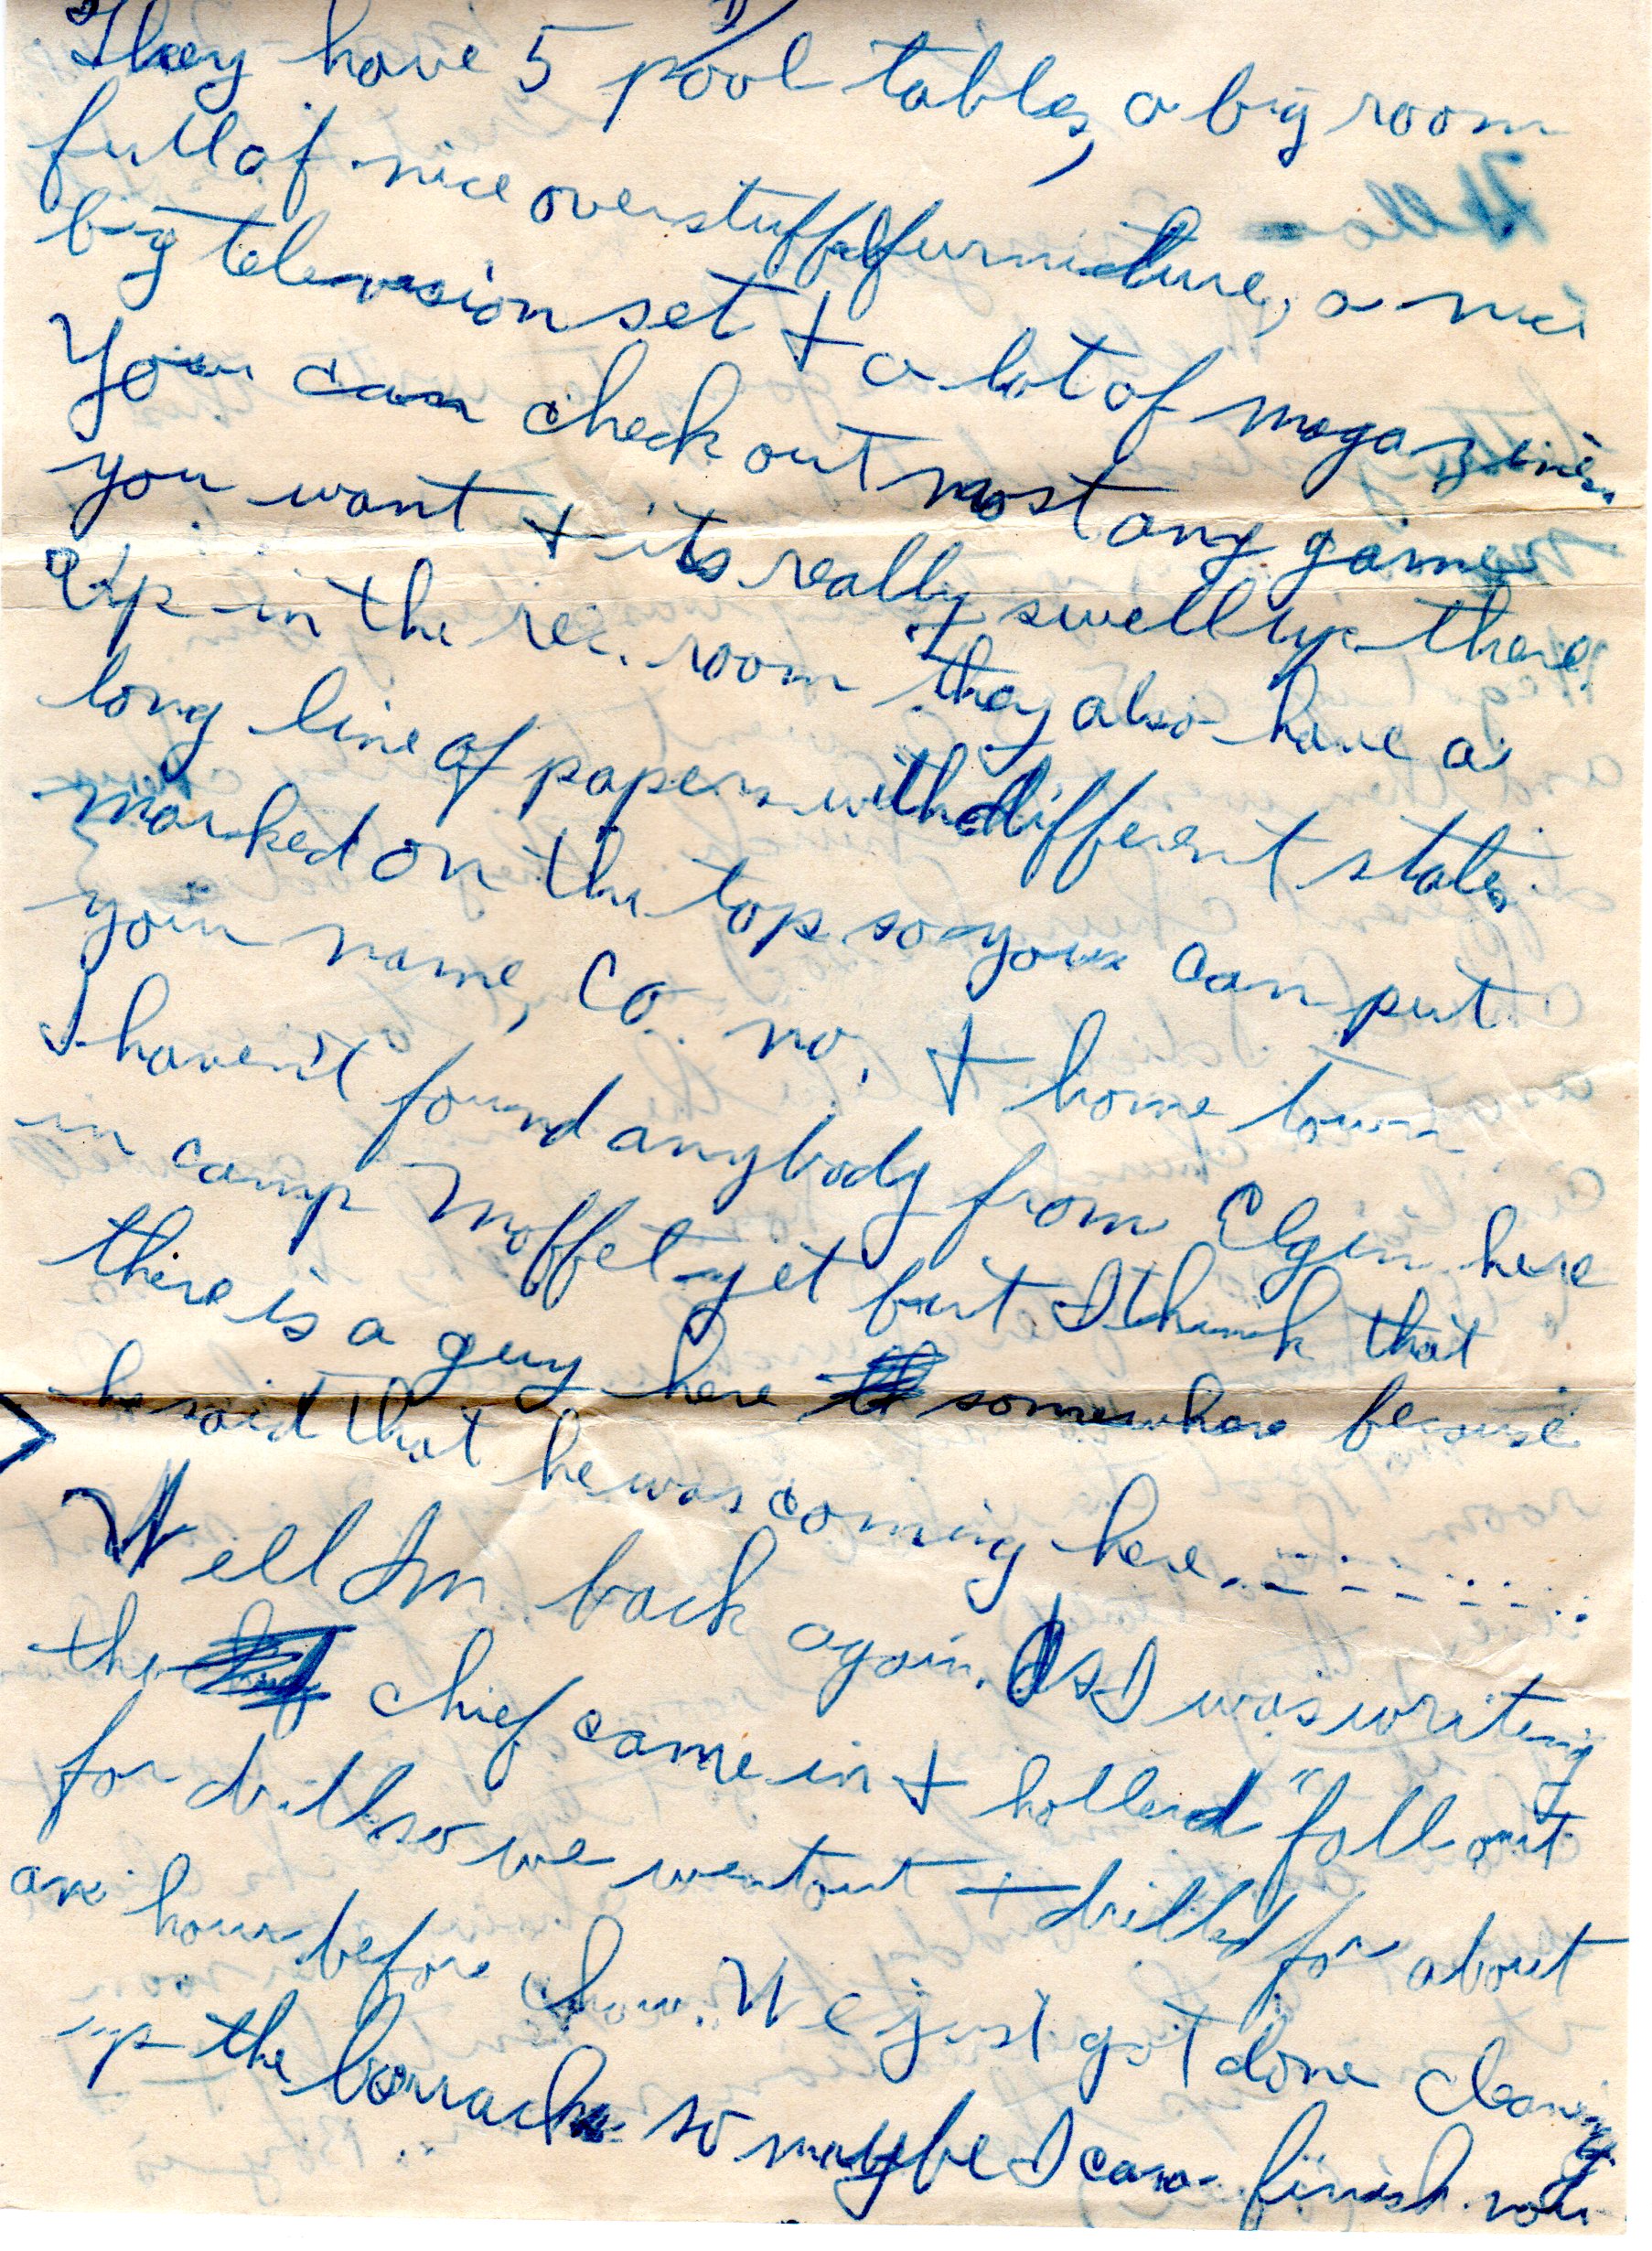 They have 5 pool tables, a big room
full of nice overstuffed furniture, a nice
big television set + a lot of magazines
You can check out most any game
you want + its really swell up there.
Up in the rec. room they also have a
long line of papers with different states
marked on the top so you can put
your name, Co. no. + home town.
I haven't found anybody from Elgin here
in camp Moffet yet but I think that
there is a guy here somewhere because
he said that he was coming here.
Well Im back again. As I was writing
the chief came in + hollerd "fall out
for drill so we went out + drilled for about
an hour before chow. We just got done cleaning
up the barracks so maybe I can finish now
Hello